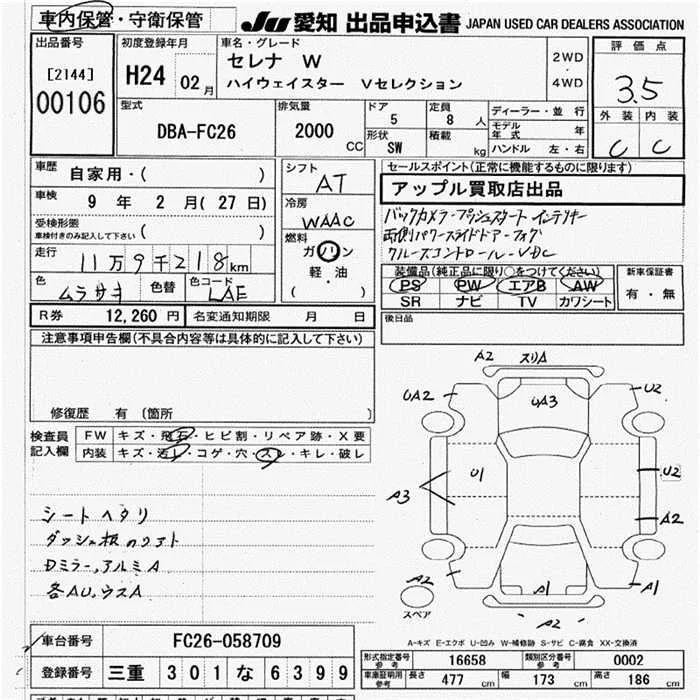 車内保管・守衛保管
JU 愛知 出品申込書 JAPAN USED CAR DEALERS ASSOCIATION
出品番号
[2144]
00106
初度登録年月
H24 02月
車名・グレード
セレナ W
ハイウェイスター Vセレクション
2WD
・
4WD
評価点
3.5
外装 内装
C C
型式
DBA-FC26
排気量
2000 CC
ドア
5
定員
8 人
形状
SW
積載
kg
ディーラー・並 行
モデル年式 年
ハンドル 左・右
車歴
自家用・( )
車検
9 年 2 月 ( 27 日)
受検形態
車検付きのみ記入して下さい ( )
走行
11万9千218km
色
ムラサキ
色替
色コード
LAE
シフト
AT
冷房
WAAC
燃料
ガソリン
軽・油
( )
セールスポイント(正常に機能するものに限ります)
アップル買取店出品
バックカメラ・プッシュスタート インテリキー
両側パワースライドドア・フォグ
クルーズコントロール・VDC
装備品(純正品に限り○をつけてください)
PS PW エアB AW
SR ナビ TV カワシート
新車保証書
有・無
後日品
R券 12,260 円 名変通知期限 月 日
注意事項申告欄(不具合内容等は具体的に記入して下さい)
修復歴 有 〔箇所 〕
検査員記入欄
FW キズ・飛石・ヒビ割・リペア跡・X要
内装 キズ・汚レ・コゲ・穴・スレ・キレ・破レ
シートヘタリ
ダッシュ板のリフト
Dミラー、アルミA
各AU、ウスA
A2 スリA
UA2 UA3 U2
A3 U1 U2
A2
A2 A1 A1
スペア
A2
A-キズ E-エクボ U-凹み W-補修跡 S-サビ C-腐食 XX-交換済
車台番号 FC26-058709
登録番号 三重 301 な 6399
形式指定番号 参考 16658 類別区分番号 参考 0002
車庫証明用 参考 長さ 477 cm 幅 173 cm 高さ 186 cm